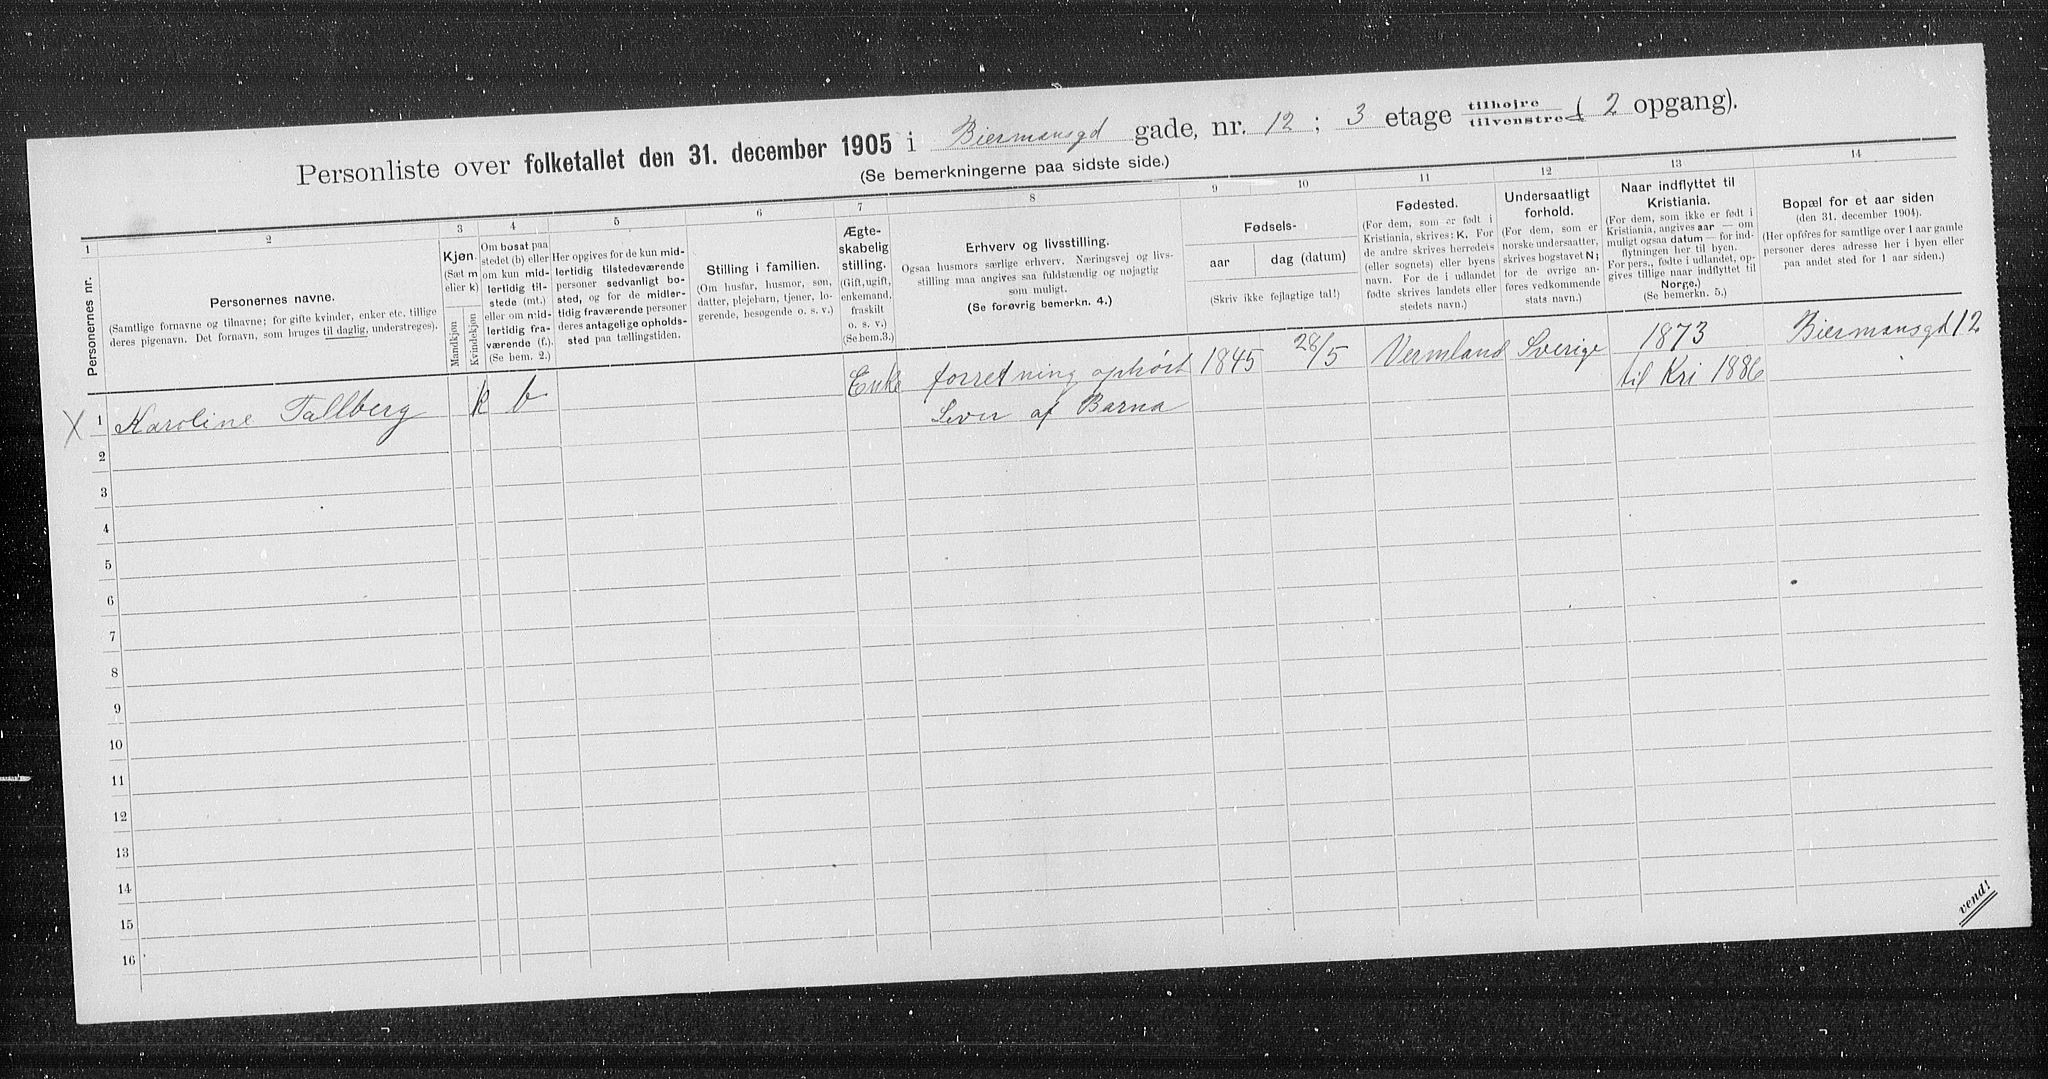 Personliste over folketallet den 31. december 1905 i Biermansgd gade, nr. 12 ; 3 etage tilhøjre tilvenstre ( 2 opgang).
(Se bemerkningerne paa sidste side.)
1
Personernes nr.
2
Personernes navne.
(Samtlige fornavne og tilnavne; for gifte kvinder, enker etc. tillige
deres pigenavn. Det fornavn, som bruges til daglig, understreges).
3
Kjøn.
(Sæt m
eller k)
Mandkjøn
Kvindekjøn
4
Om bosat paa
stedet (b) eller
om kun mid-
lertidig til-
stede (mt.)
eller om mid-
lertidig fra-
værende (f.).
(Se bem. 2.)
5
Her opgives for de kun mid-
lertidig tilstedeværende
personer sedvanligt bo-
sted, og for de midler-
tidig fraværende personer
deres antagelige opholds-
sted paa tællingstiden.
6
Stilling i familien.
(Om husfar, husmor, søn,
datter, plejebarn, tjener, lo-
gerende, besøgende o. s. v.)
7
Ægte-
skabelig
stilling.
(Gift, ugift,
enkemand,
fraskilt
o. s. v.)
(Se bem. 3.)
8
Erhverv og livsstilling.
Ogsaa husmors særlige erhverv. Næringsvej og livs-
stilling maa angives saa fuldstændig og nøjagtig
som muligt.
(Se forøvrig bemerkn. 4.)
9
10
Fødsels-
aar
dag (datum)
(Skriv ikke fejlagtige tal!)
11
Fødested.
(For dem, som er født i
Kristiania, skrives: K. For
de andre skrives herredets
(eller sognets) eller byens
navn. For de i udlandet
fødte skrives landets eller
stedets navn.)
12
Undersaatligt
forhold.
(For dem, som er
norske undersaatter,
skrives bogstavet N;
for de øvrige an-
føres vedkommende
stats navn.)
13
Naar indflyttet til
Kristiania.
(For dem, som ikke er født i
Kristiania, angives aar — om
muligt ogsaa datum — for ind-
flytningen her til byen.
For pers., fødte i udlandet, op-
gives tillige naar indflyttet til
Norge.)
(Se bemerkn. 5.)
14
Bopæl for et aar siden
(den 31. december 1904).
(Her opføres for samtlige over 1 aar gamle
personer deres adresse her i byen eller
paa andet sted for 1 aar siden.)
X 1 Karoline Tallberg k b Enke forretning ophørt 1845 28/5 Vermland Sverige 1873 Biermansgd 12
Lever af Barna til Kri 1886
2
3
4
5
6
7
8
9
10
11
12
13
14
15
16
vend!